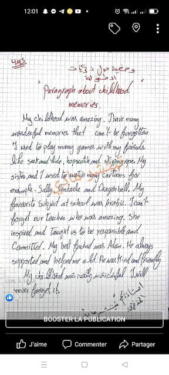 12:01
"Paragraph about childhood
memories."
My childhood was amazing. I have many
wonderful memories that can't be forgotten
I used to play many games with my friends
like seek and hide, hopscotch and
sister and I used to watch many cartoons for
example. Sally, and Dragon ball. My
favourite subject at school was I can't
forget our teacher who was amazing. She
inspired and taught us to be responsible and
Committed. My best friend was He always
supported and helped me a lot. He was kind and friendly
My childhood was really wonderful I will
never forget it.
BOOSTER LA PUBLICATION
J'aime
Commenter
Partager